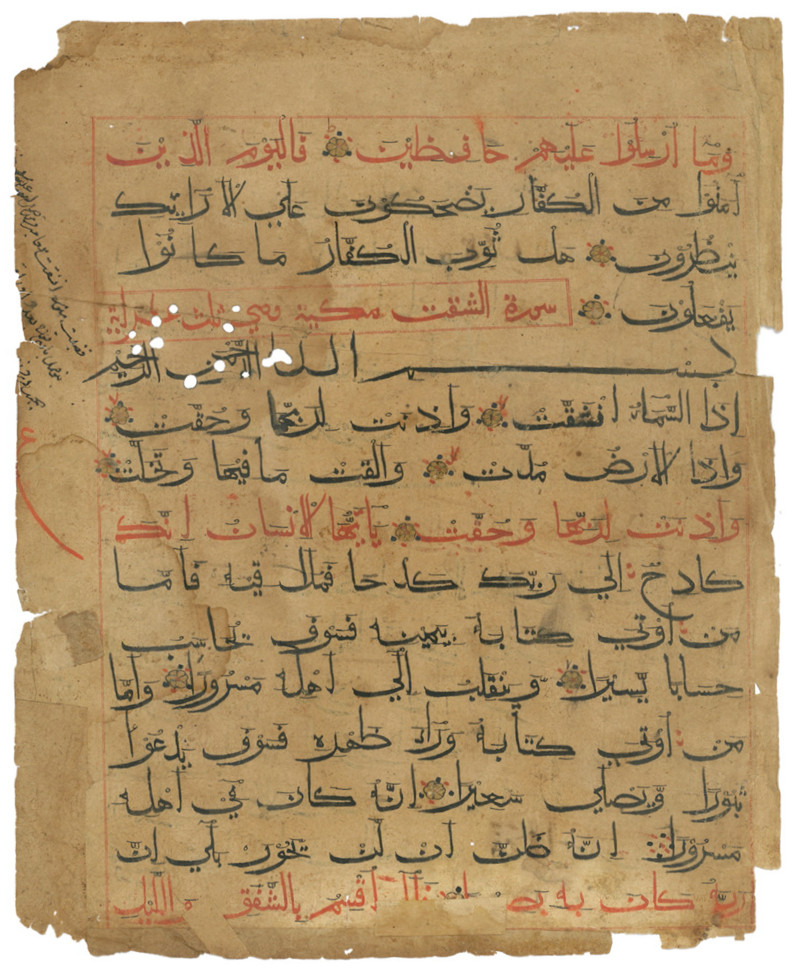 وما ارسلوا عليهم حافظين فاليوم الذين
امنوا من الكفار يضحكون علي الارائك
ينظرون هل ثوب الكفار ما كانوا
يفعلون سورة انشقت مكية وهي ثلث
بسم الله الرحمن الرحيم
اذا السماء انشقت واذنت لربها وحقت
واذا الارض مدت والقت ما فيها وتخلت
واذنت لربها وحقت يايها الانسان انك
كادح الي ربك كدحا فملاقيه فاما
من اوتي كتابه بيمينه فسوف يحاسب
حسابا يسيرا وينقلب الي اهله مسرورا واما
من اوتي كتابه وراء ظهره فسوف يدعوا
ثبورا ويصلي سعيرا انه كان في اهله
مسرورا انه ظن ان لن يحور بلي ان
ربه كان به اقسم بالشفق والليل